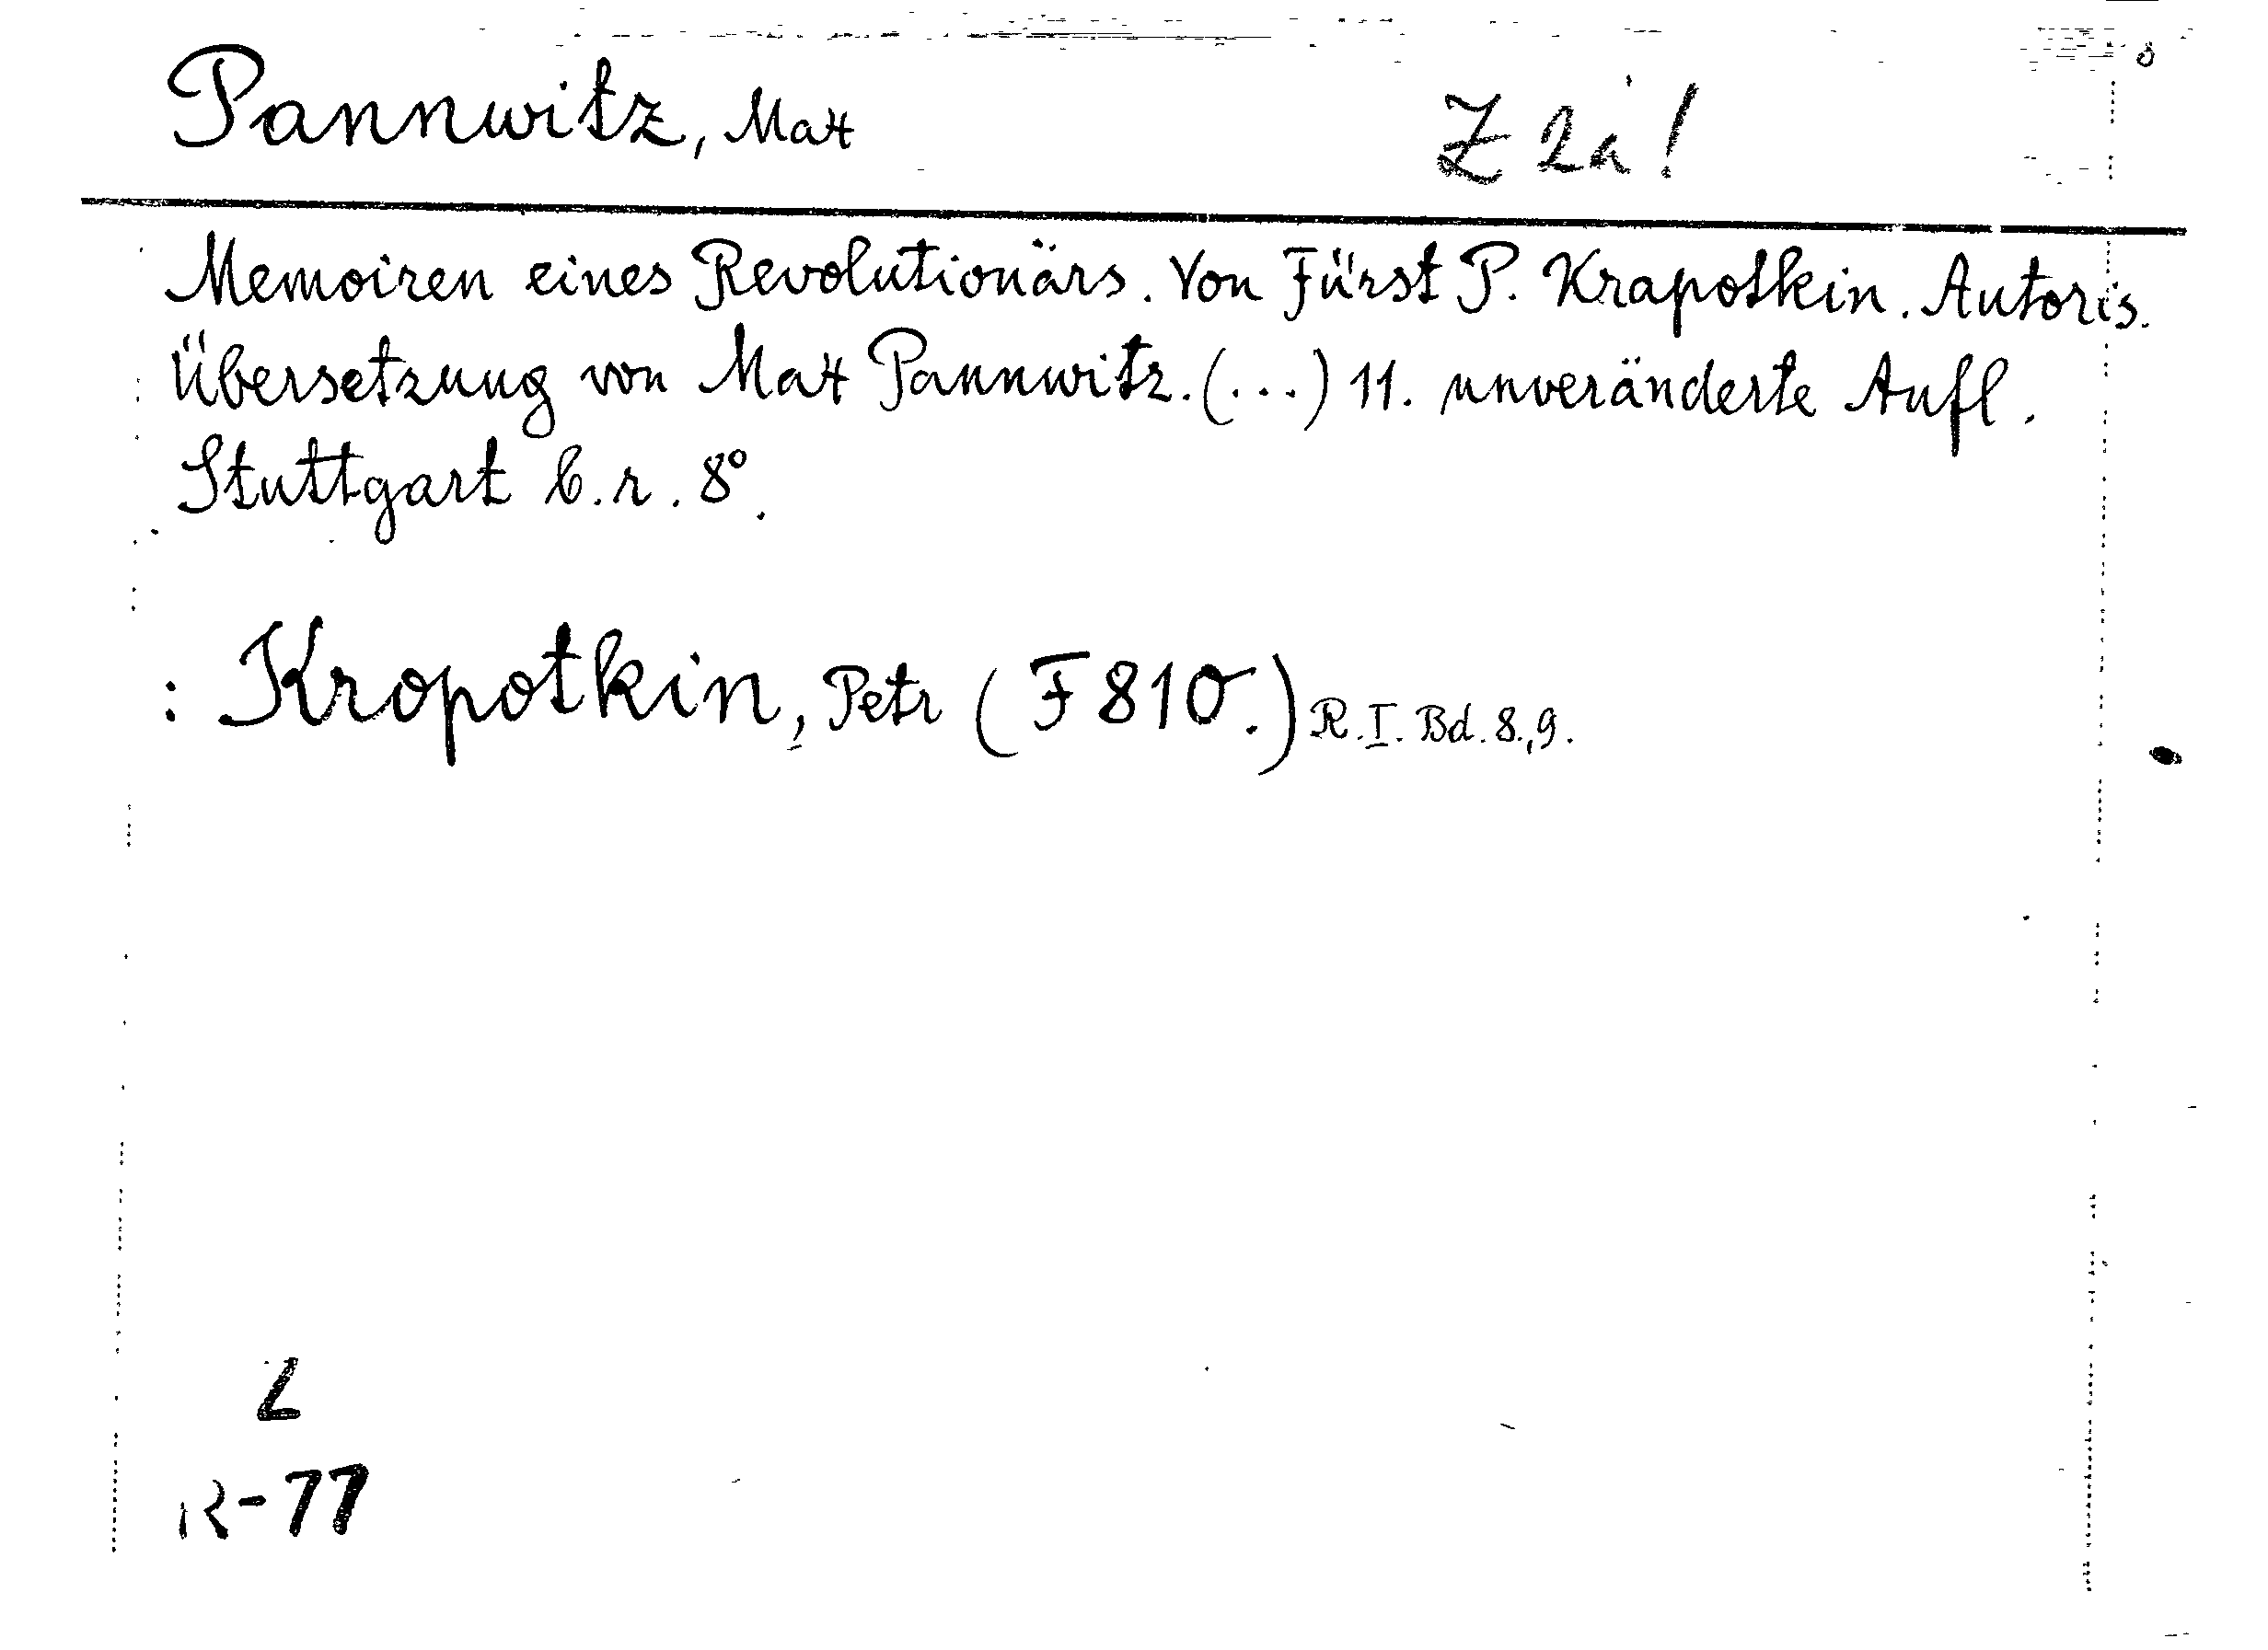 Pannwitz, Max
Z 2a!
Memoiren eines Revolutionärs. Von Fürst P. Krapotkin. Autoris.
Übersetzung von Max Pannwitz. (...) 11. unveränderte Aufl.
Stuttgart b.r. 8°.
: Kropotkin, Petr (F 810.) R.I. Bd. 8.,9.
Z
R-77